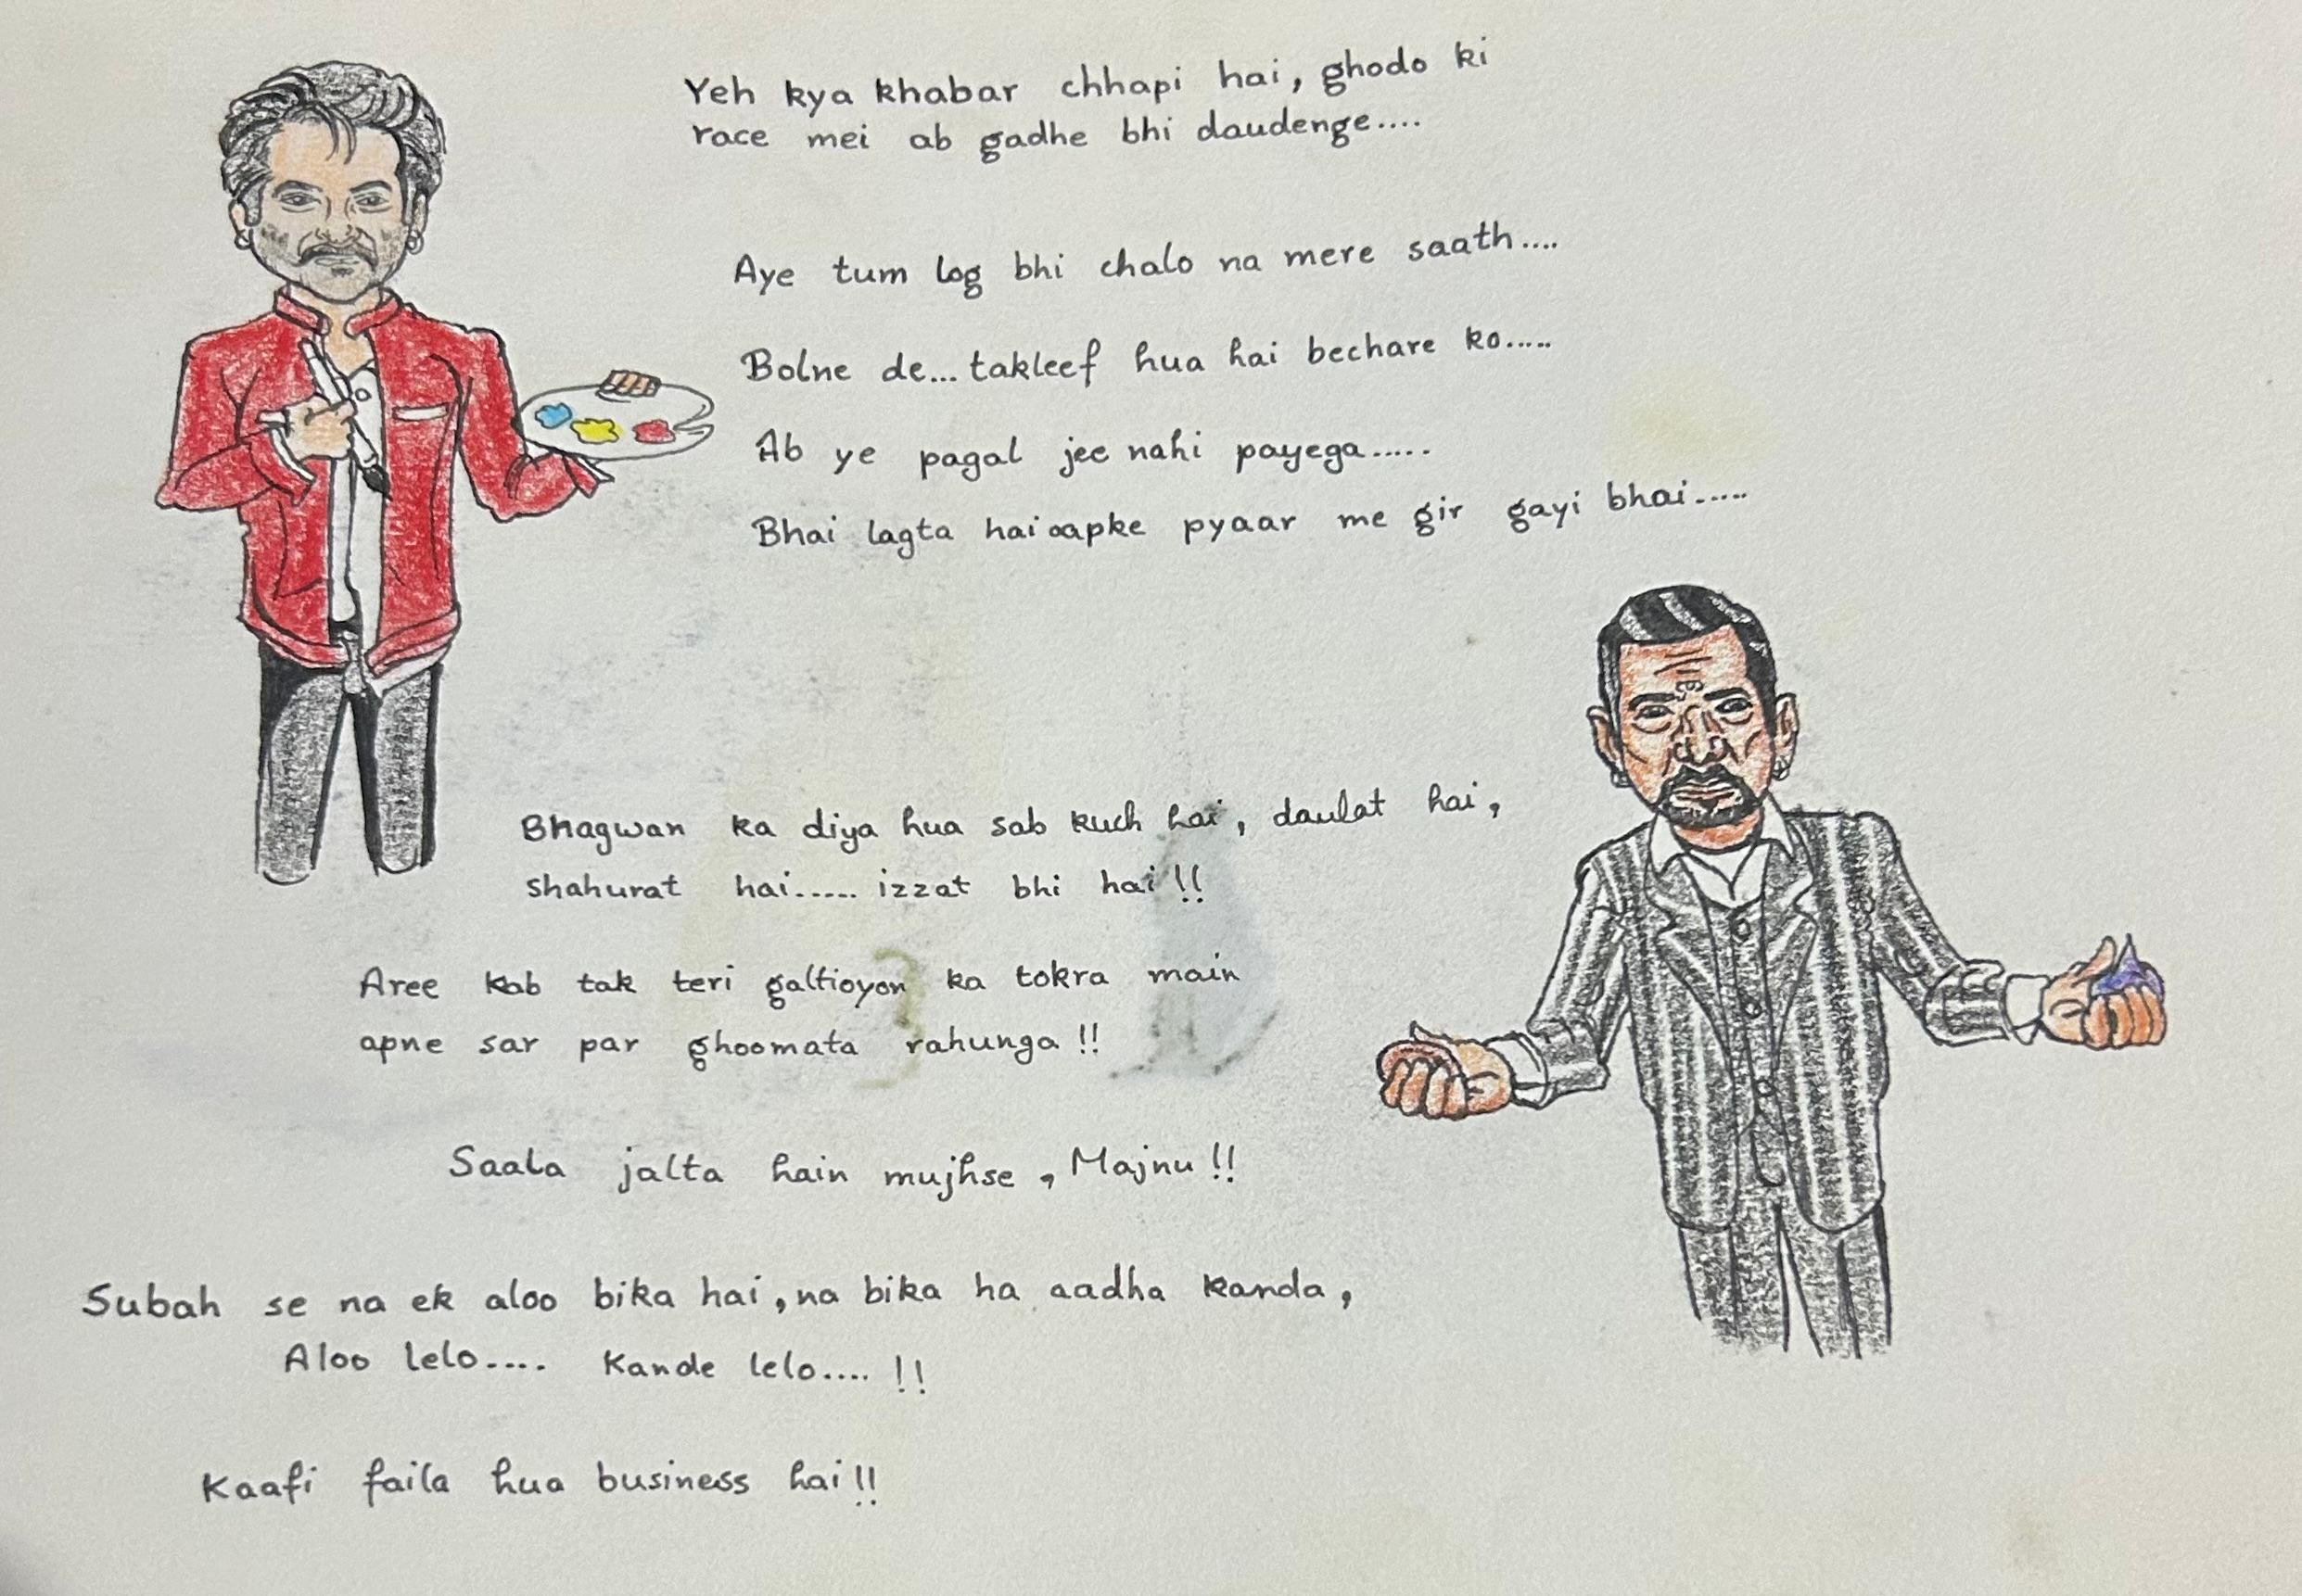 Yeh kya khabar chhapi hai, ghodo ki
race mei ab gadhe bhi daudenge....
Aye tum log bhi chalo na mere saath....
Bolne de... takleef hua hai bechare ko.....
Ab ye pagal jee nahi payega.....
Bhai lagta hai aapke pyaar me gir gayi bhai.....
Bhagwan ka diya hua sab kuch hai, daulat hai,
shahurat hai..... izzat bhi hai!!
Aree kab tak teri galtioyon ka tokra main
apne sar par ghoomata rahunga!!
Saala jalta hain mujhse, Majnu!!
Subah se na ek aloo bika hai, na bika ha aadha kanda,
Aloo lelo.... Kande lelo.... !!
Kaafi faila hua business hai!!